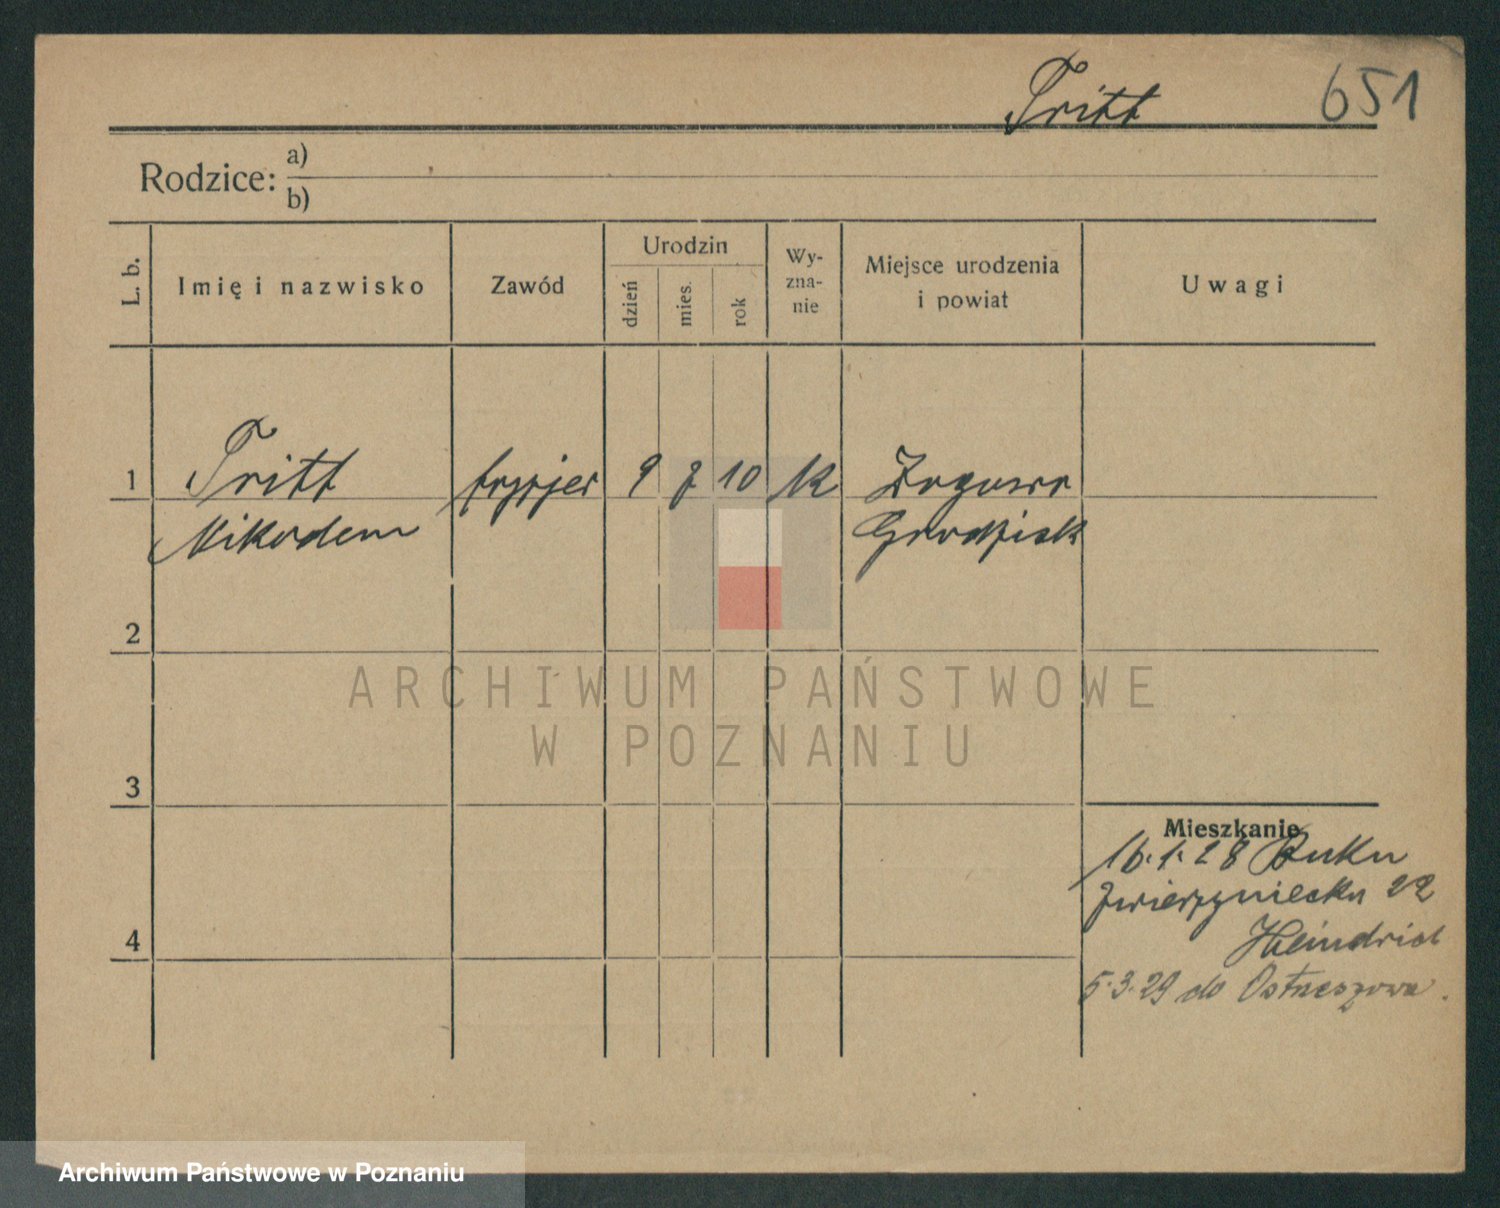 Tritt 651
Rodzice: a)
b)
L. b. Imię i nazwisko Zawód Urodzin dzień mies. rok Wy-zna-nie Miejsce urodzenia i powiat Uwagi
1 Tritt fryzjer 9 10 K
Nikodem Grodzisk
2
ARCHIWUM PAŃSTWOWE
W POZNANIU
3
Mieszkanie
16.1.28 Buku
Zwierzyniecka 22
5.3.29 do Ostrzeszowa.
4
Archiwum Państwowe w Poznaniu